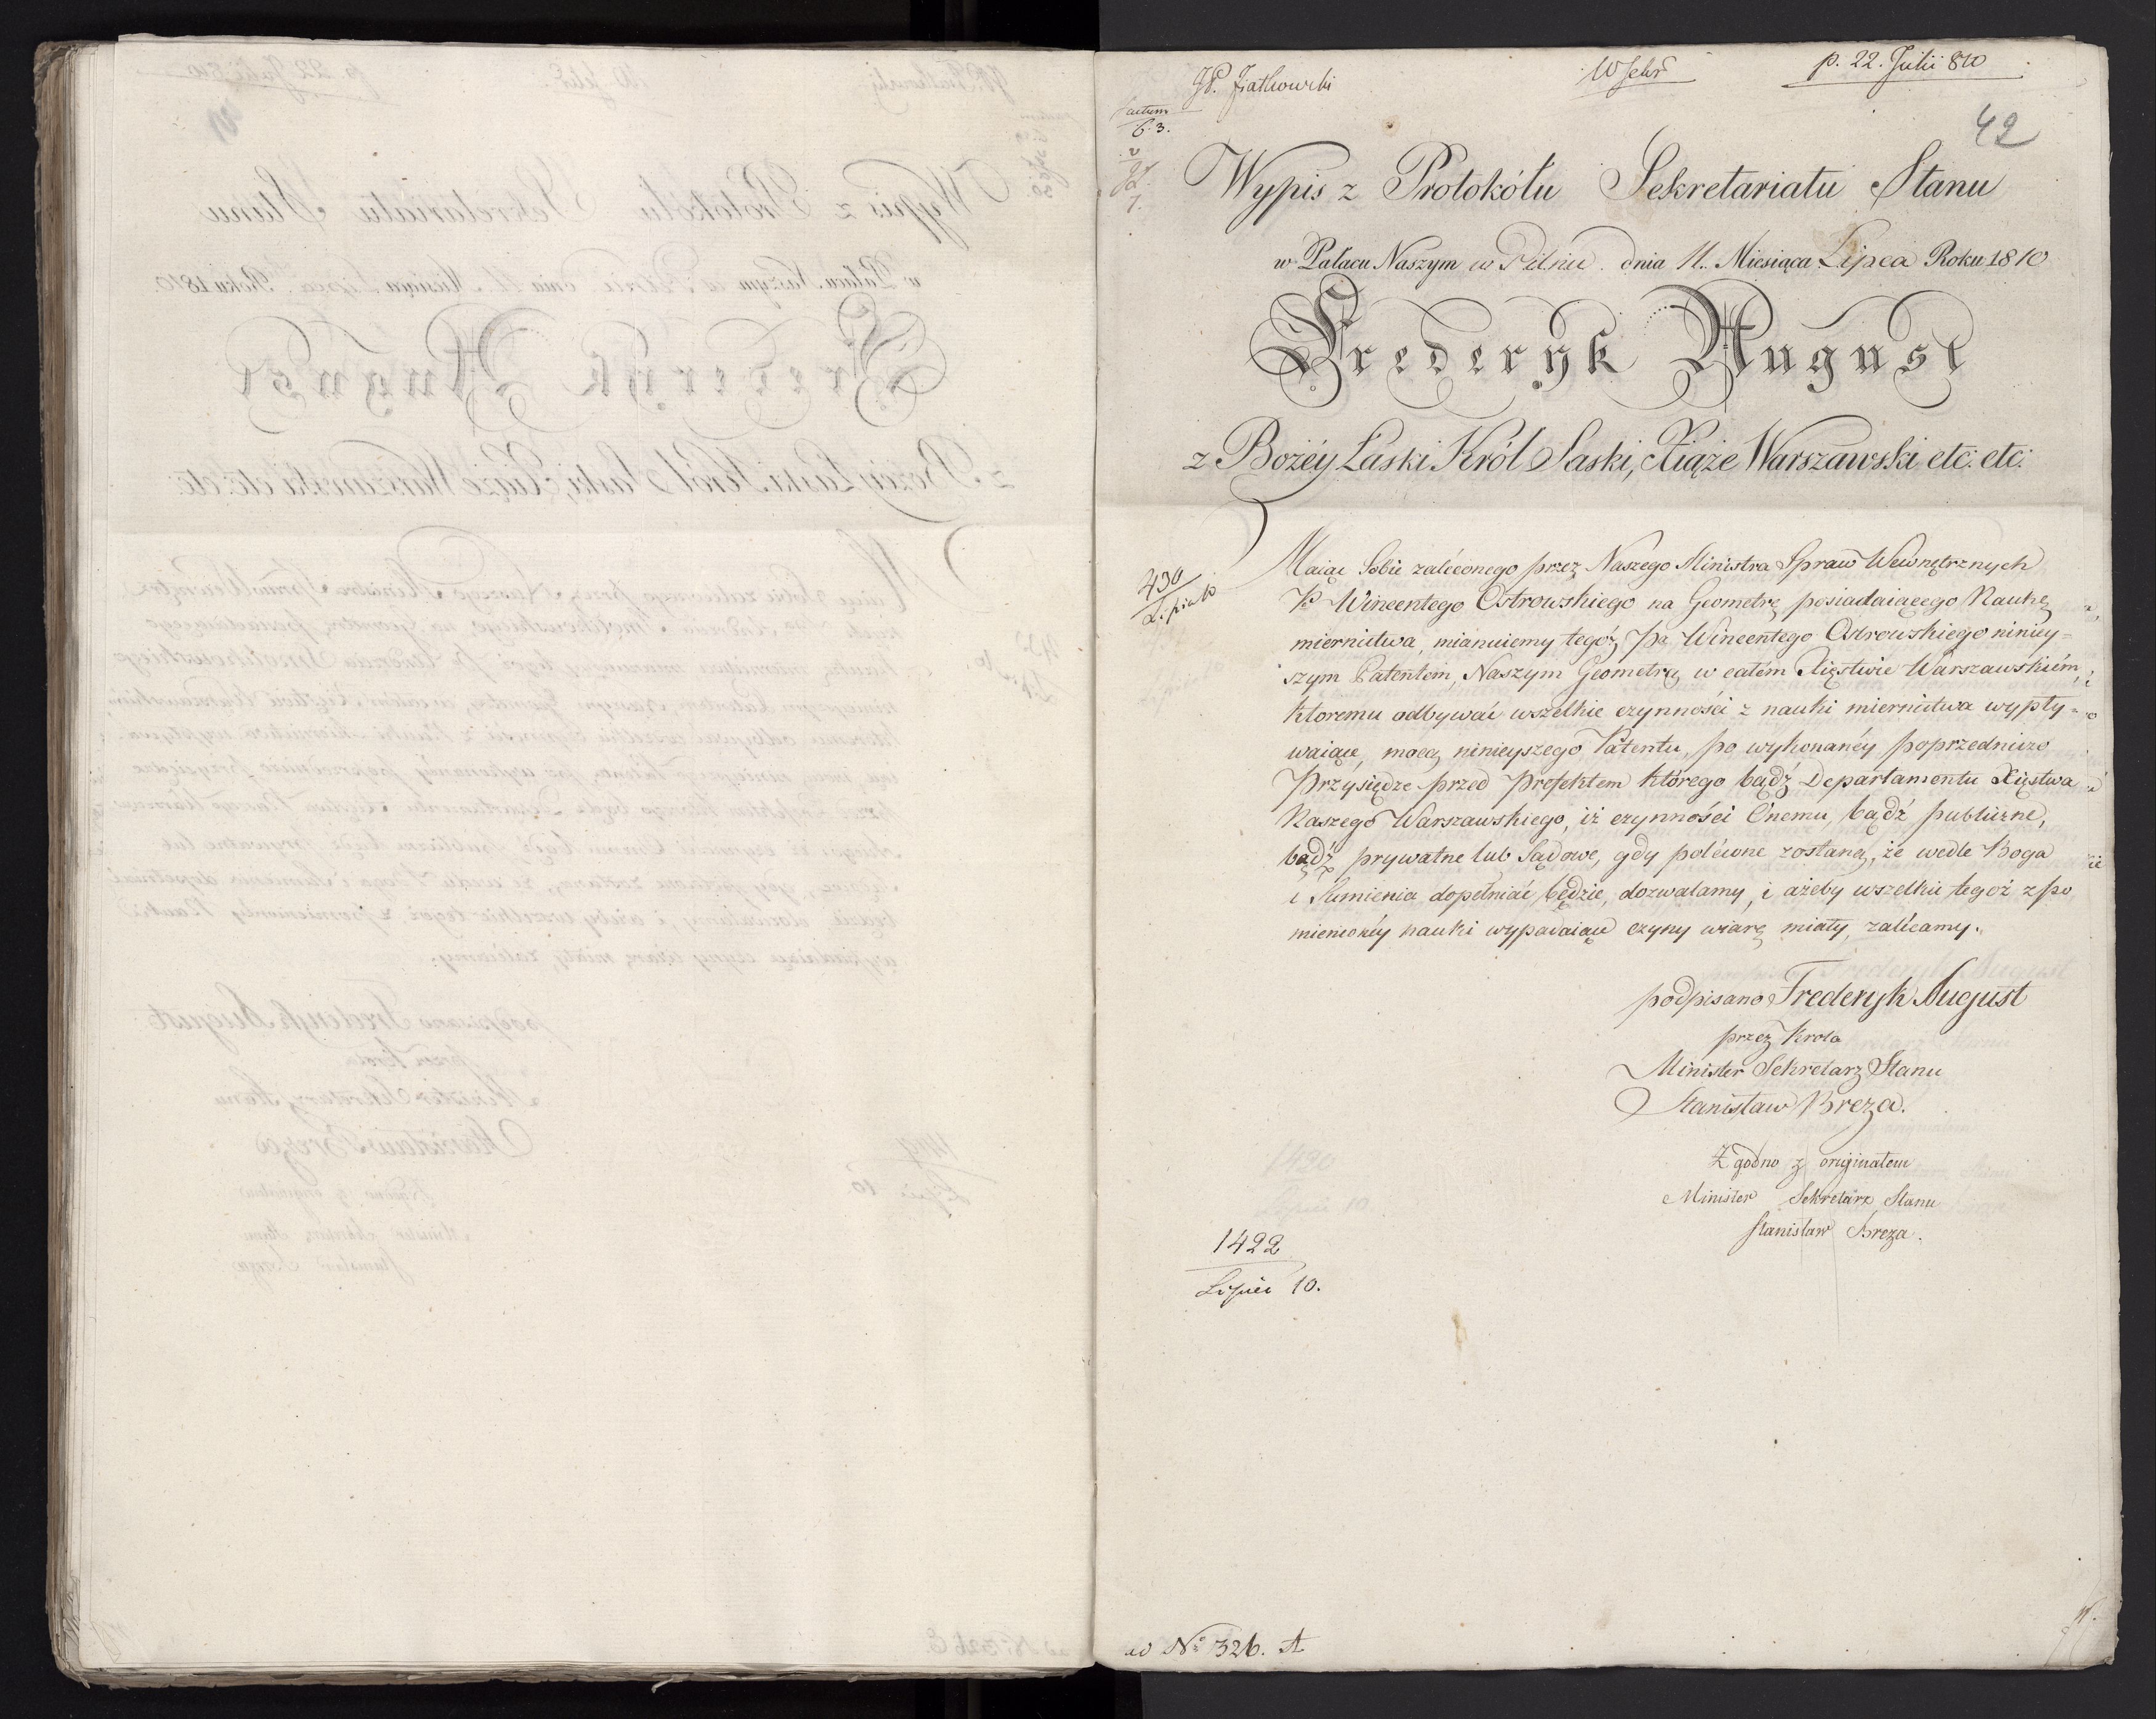 W Sekr
p. 22. Julii 810
42
Wypis z Protokółu Sekretariatu Stanu
w Pałacu Naszym w Pilniu. dnia 11. Miesiąca Lipca Roku 1810
Frederyk August
z Bożéy Łaski Król Saski, Xiąże Warszawski etc: etc:
Maiąc Sobie zaléconego przez Naszego Ministra Spraw Wewnętrznych
Pa Wincentego Ostrowskiego na Geometrę posiadaiącego Naukę
miernictwa, mianuiemy tegóż Pa Wincentego Ostrowskiego niniey=
szym Patentem, Naszym Geometrą w całém Xięstwie Warszawskiém,
ktoremu odbywać wszelkie czynności z nauki miernictwa wypły=
waiące, mocą ninieyszego Patentu, po wykonanéy poprzedniczo
Przysiędze przed Prefektem którego bądź Departamentu Xięstwa
Naszego Warszawskiego, iż czynności Onemu, bądź publiczne,
bądź prywatne lub Sądowe, gdy polécone zostaną, że wedle Boga
i Sumienia dopełniać będzie, dozwalamy, i ażeby wszelkie tegoż z po
mienionéy nauki wypadaiące czyny wiarę miały, zalécamy.
430
Lipca 10
podpisano Frederyk August
przez Krola
Minister Sekretarz Stanu
Stanisław Breza.
Zgodno z originałem
Minister Sekretarz Stanu
Stanisław Breza.
1422
Lipiec 10.
ad No 326. A